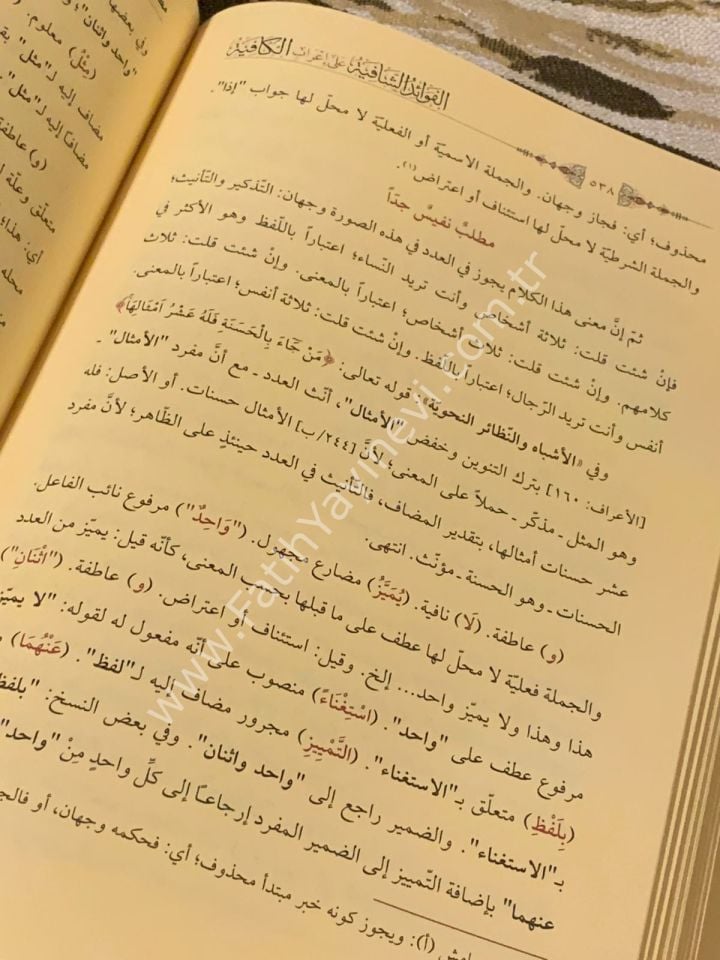 الفَوَائِدُ الشَّافِيَة عَلَى إِعْرَابِ الكَافِيَة
٥٣٨
محذوف؛ أي: فجاز وجهان. والجملة الاسميّة أو الفعليّة لا محلّ لها جواب "إذا".
والجملة الشرطيّة لا محلّ لها استئناف أو اعتراض(١).
مطلبٌ نفيسٌ جدّاً
ثمّ إنَّ معنى هذا الكلام يجوز في العدد في هذه الصورة وجهان: التّذكير والتّأنيث؛
فإنْ شئت قلت: ثلاثة أشخاص وأنت تريد النّساء؛ اعتباراً باللّفظ وهو الأكثر في
كلامهم. وإنْ شئت قلت: ثلاث أشخاص؛ اعتباراً بالمعنى. وإنْ شئت قلت: ثلاث
أنفس وأنت تريد الرّجال؛ اعتباراً باللّفظ. وإنْ شئت قلت: ثلاثة أنفس؛ اعتباراً بالمعنى.
وفي «الأشباه والنّظائر النحويّة»: قوله تعالى: ﴿مَنْ جَٓاءَ بِالْحَسَنَةِ فَلَهُ عَشْرُ اَمْثَالِهَا﴾
[الأعراف: ١٦٠] بترك التنوين وخفض "الأمثال"، أنّث العدد ـ مع أنَّ مفرد "الأمثال" ـ
وهو المثل ـ مذكّر ـ حملاً على المعنى؛ لأنَّ [٢٤٤/ب] الأمثال حسنات. أو الأصل: فله
عشر حسنات أمثالها، بتقدير المضاف، فالتّأنيث في العدد حينئذٍ على الظّاهر؛ لأنَّ مفرد
الحسنات ـ وهو الحسنة ـ مؤنّث. انتهى.
(و) عاطفة. (لَا) نافية. (يُمَيَّزُ) مضارع مجهول. ("وَاحِدٌ") مرفوع نائب الفاعل.
والجملة فعليّة لا محلّ لها عطف على ما قبلها بحسب المعنى، كأنّه قيل: يميّز من العدد
هذا وهذا ولا يميّز واحد... إلخ. وقيل: استئناف أو اعتراض. (و) عاطفة. ("اثْنَانِ")
مرفوع عطف على "واحد". (اسْتِغْنَاءً) منصوب على أنّه مفعول له لقوله: "لا يميّز
(بِلَفْظِ) متعلّق بـ"الاستغناء". (التَّمْيِيزِ) مجرور مضاف إليه لـ"لفظ". (عَنْهُمَا)
بـ"الاستغناء". والضمير راجع إلى "واحد واثنان". وفي بعض النسخ: "بلفظ
عنهما" بإضافة التّمييز إلى الضمير المفرد إرجاعًا إلى كلِّ واحدٍ مِنْ "واحد"
(أ): ويجوز كونه خبر مبتدأ محذوف؛ أي: فحكمه وجهان، أو
وفي بعضها
"واحد واثنان"؛
(مِثْلُ) معلوم.
مضاف إليه لـ"مثل"
مضافًا إليه لـ"مثل"
(و) عاطفة
متعلّق وعلّة
أي: هذا؛
محله
www.FatihYayinevi.com.tr